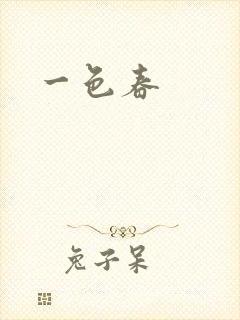 一色春
兔子呆